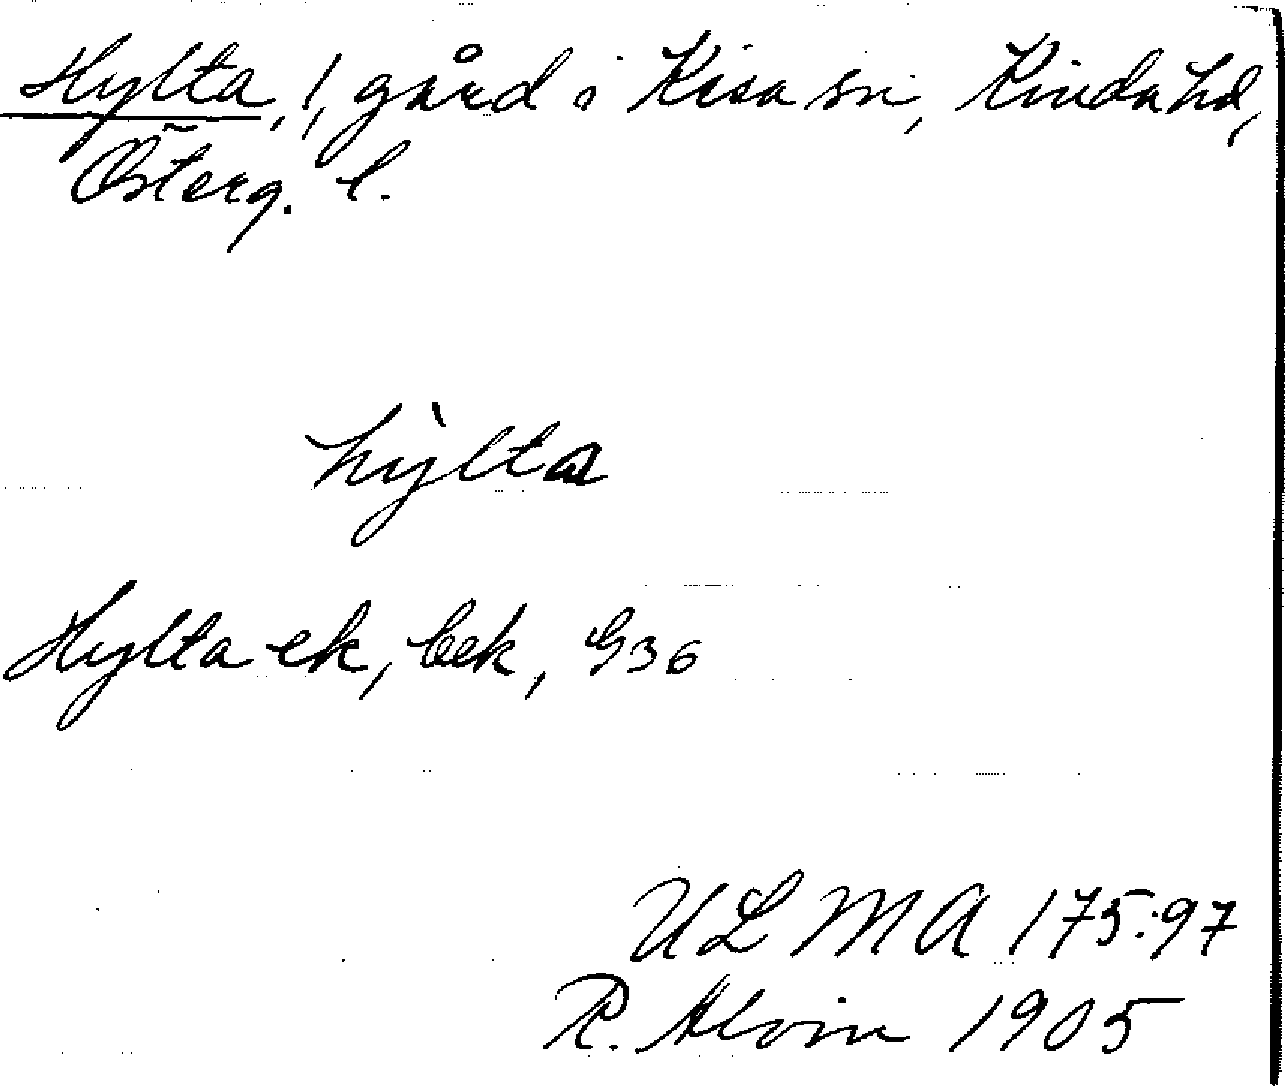 Hylta, !, gård i Kisa sn, Kinda hd,
Österg. l.
hỳlta
Hylta ek, bek, G36
ULMA 175:97
R. Alvin 1905